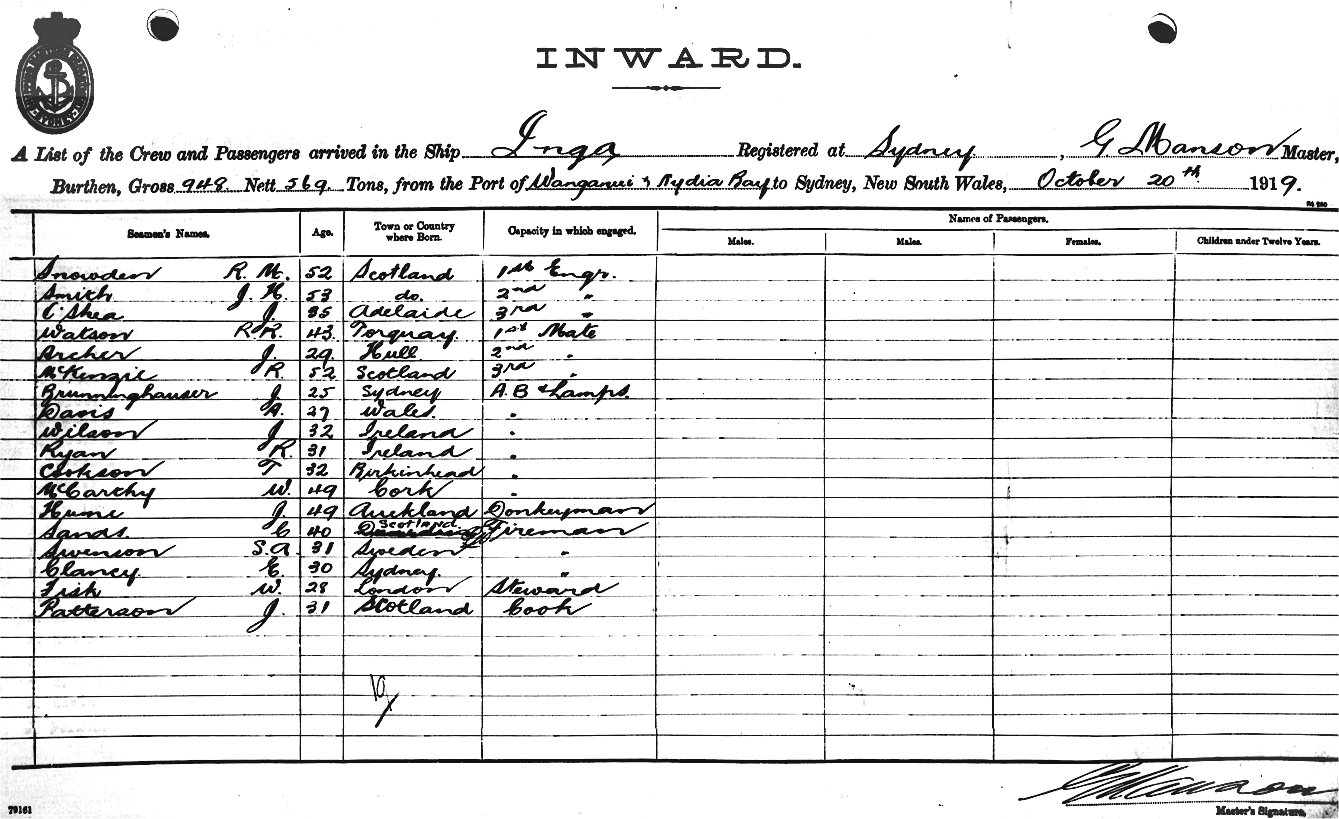 INWARD.
SYDNEY
A List of the Crew and Passengers arrived in the Ship Inga Registered at Sydney, G. Manson Master,
Burthen, Gross 948 Nett 569 Tons, from the Port of Wanganui & Nydia Bay to Sydney, New South Wales, October 20th 1919.
Seamen's Names. Age. Town or Country where Born. Capacity in which engaged. Names of Passengers.
Males. Males. Females. Children under Twelve Years.
Snowden R. M. 52 Scotland 1st Engr.
Smith J. H. 53 do. 2nd "
O'Shea J. 35 Adelaide 3rd "
Watson R. R. 43 Torquay. 1st Mate
Archer J. 29 Hull 2nd "
McKenzie R. 52 Scotland 3rd "
Brunninghauser J. 25 Sydney A.B & Lamps.
Davis A. 27 Wales. "
Wilson J. 32 Ireland "
Ryan R. 31 Ireland "
Cookson T 32 Birkinhead "
McCarthy W. 49 Cork "
Hume J. 49 Auckland Donkeyman
Sands. C 40 Scotland. Fireman
Swenson S.A. 31 Sweden "
Clancy. E. 30 Sydney. "
Fisk W. 28 London Steward
Patterson J. 31 Scotland Cook
19
G Manson
79161
Master's Signature.